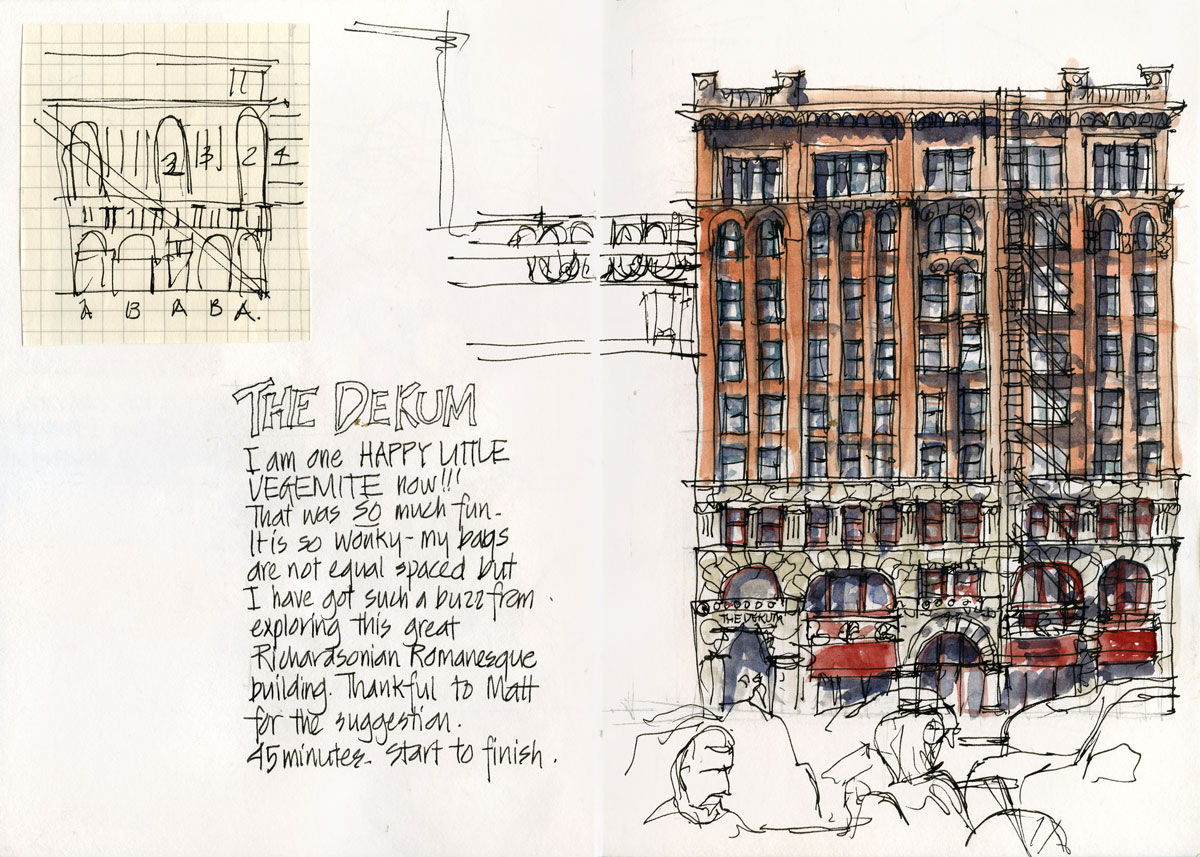 2 3 2 4
A B A B A.
THE DEKUM
I am one HAPPY LITTLE
VEGEMITE now!!!
That was SO much fun -
It is so wonky - my bays
are not equal spaced but
I have got such a buzz from
exploring this great
Richardsonian Romanesque
building. Thankful to Matt
for the suggestion.
45 minutes - start to finish.
THE DEKUM